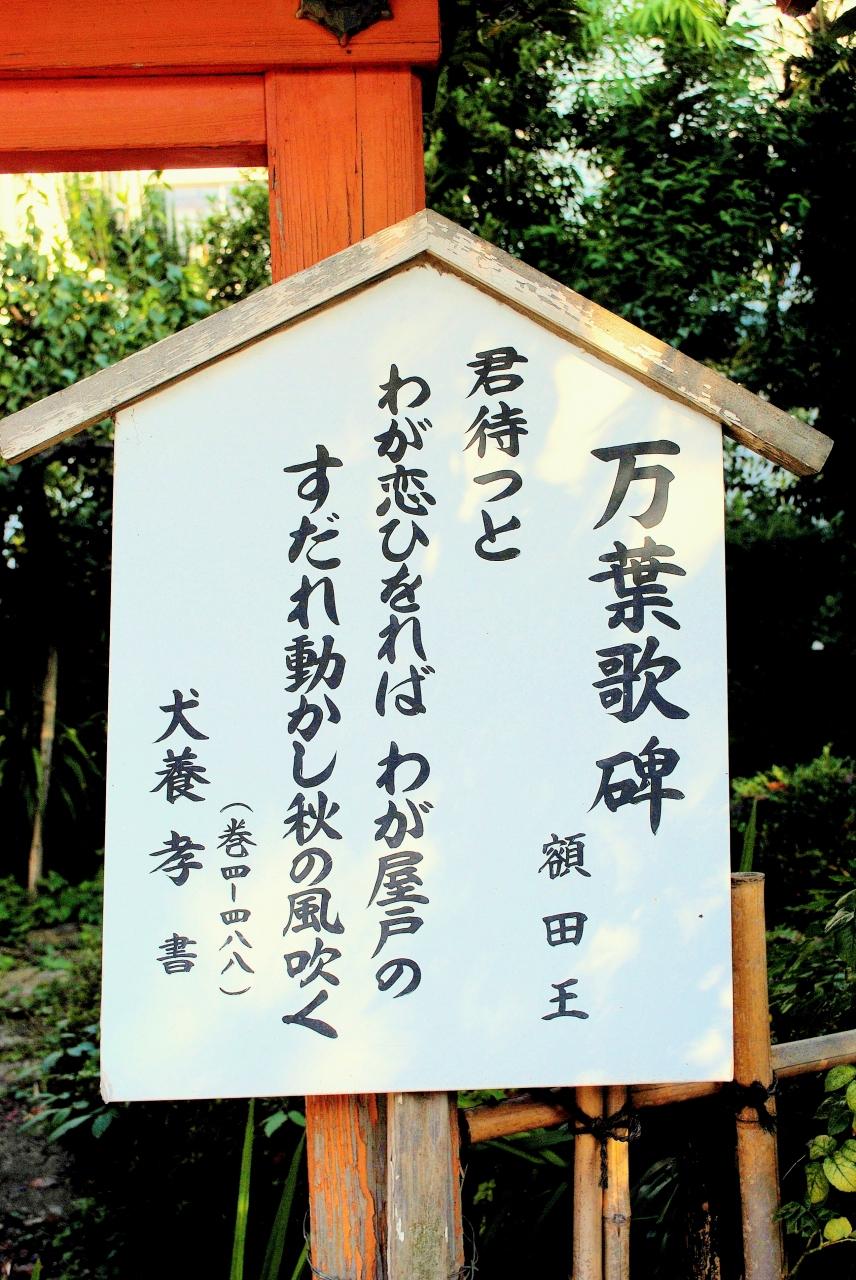 万葉歌碑
額田王
君待つと
わが恋ひをれば わが屋戸の
すだれ動かし秋の風吹く
（巻四ー四八八）
犬養 孝 書